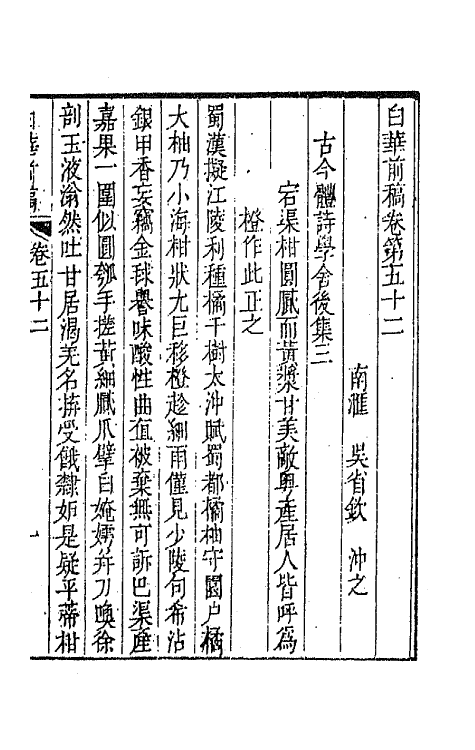 白華前稿卷第五十二
南滙　吳省欽　沖之
古今體詩學舍後集三
宕渠柑圓膩而黃漿甘美敵粵產居人皆呼爲
橙作此正之
蜀漢擬江陵利種橘千樹太沖賦蜀都橘柚守園戶橘
大柚乃小海柑狀尤巨移橙趁細雨僅見少陵句希沾
銀甲香妄竊金毬譽味酸性曲值被棄無可訴巴渠產
嘉果一圍似圓瓠手搓黃細膩爪擘白婉嫮幷刀喚徐
剖玉液滃然吐甘居渴羌名拚受餓隸妒是疑平蒂柑
白華前稿　卷五十二　一